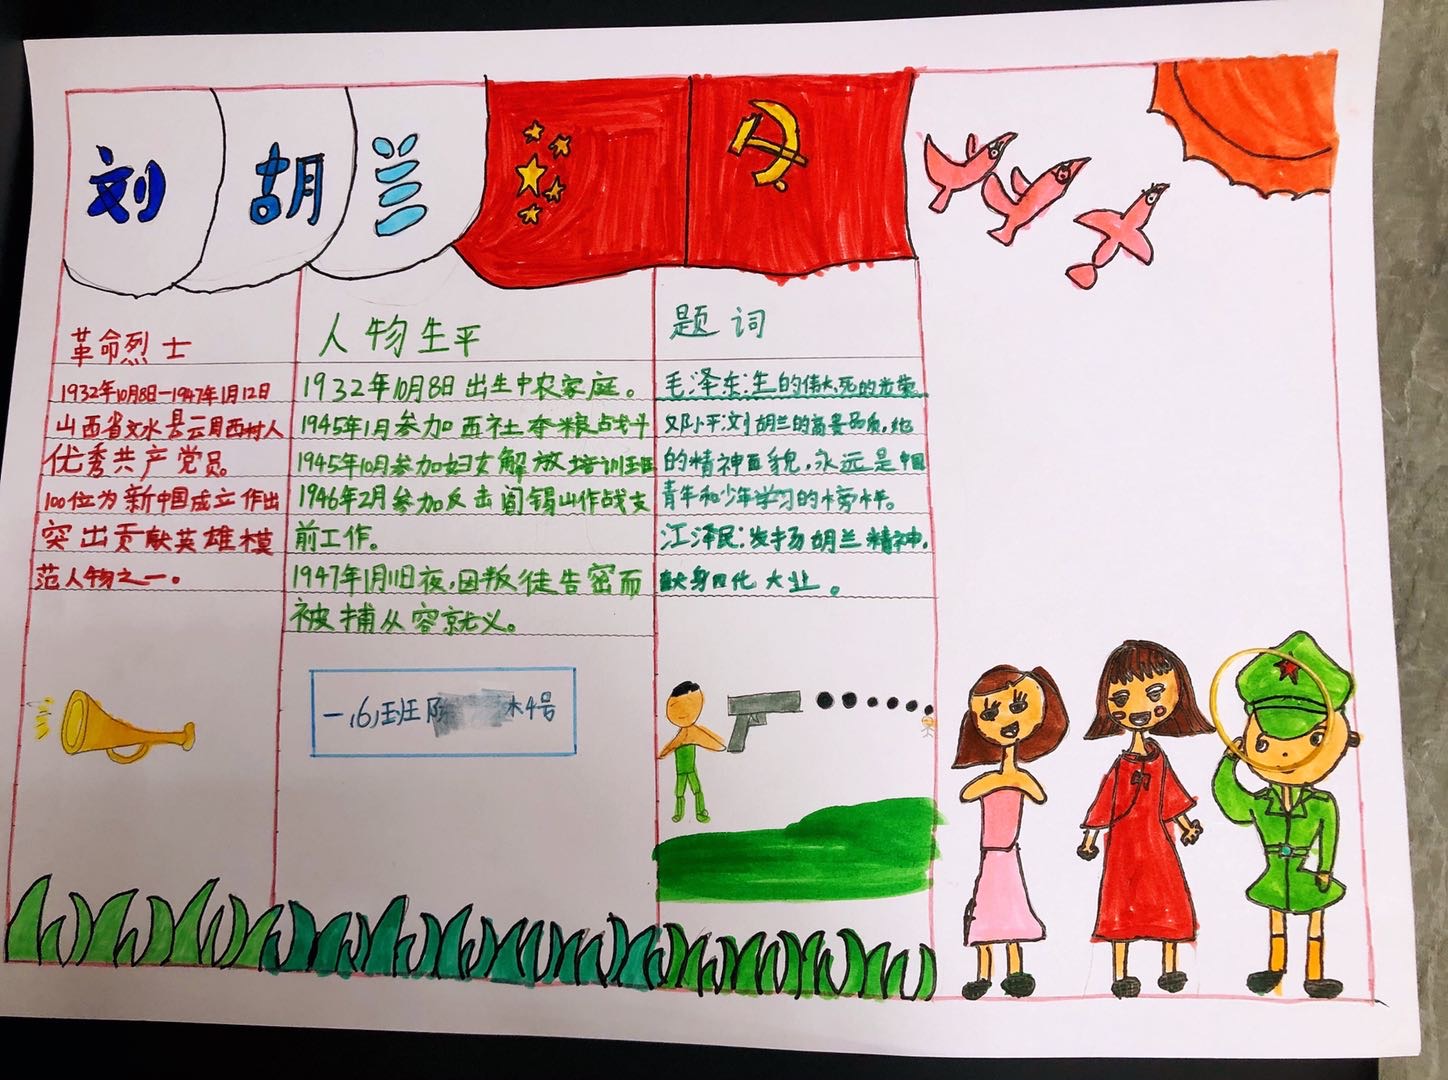 刘胡兰
革命烈士
1932年10月8日-1947年1月12日
山西省文水县云周西村人
优秀共产党员。
100位为新中国成立作出
突出贡献英雄模
范人物之一。
人物生平
1932年10月8日出生中农家庭。
1945年1月参加西社夺粮战斗
1945年10月参加妇女解放培训班
1946年2月参加反击阎锡山作战支
前工作。
1947年1月11日夜，因叛徒告密而
被捕从容就义。
一(6)班陈 4号
题词
毛泽东:生的伟大,死的光荣
邓小平:刘胡兰的高贵品质，她
的精神面貌，永远是中国
青年和少年学习的榜样。
江泽民:发扬胡兰精神，
献身四化大业。